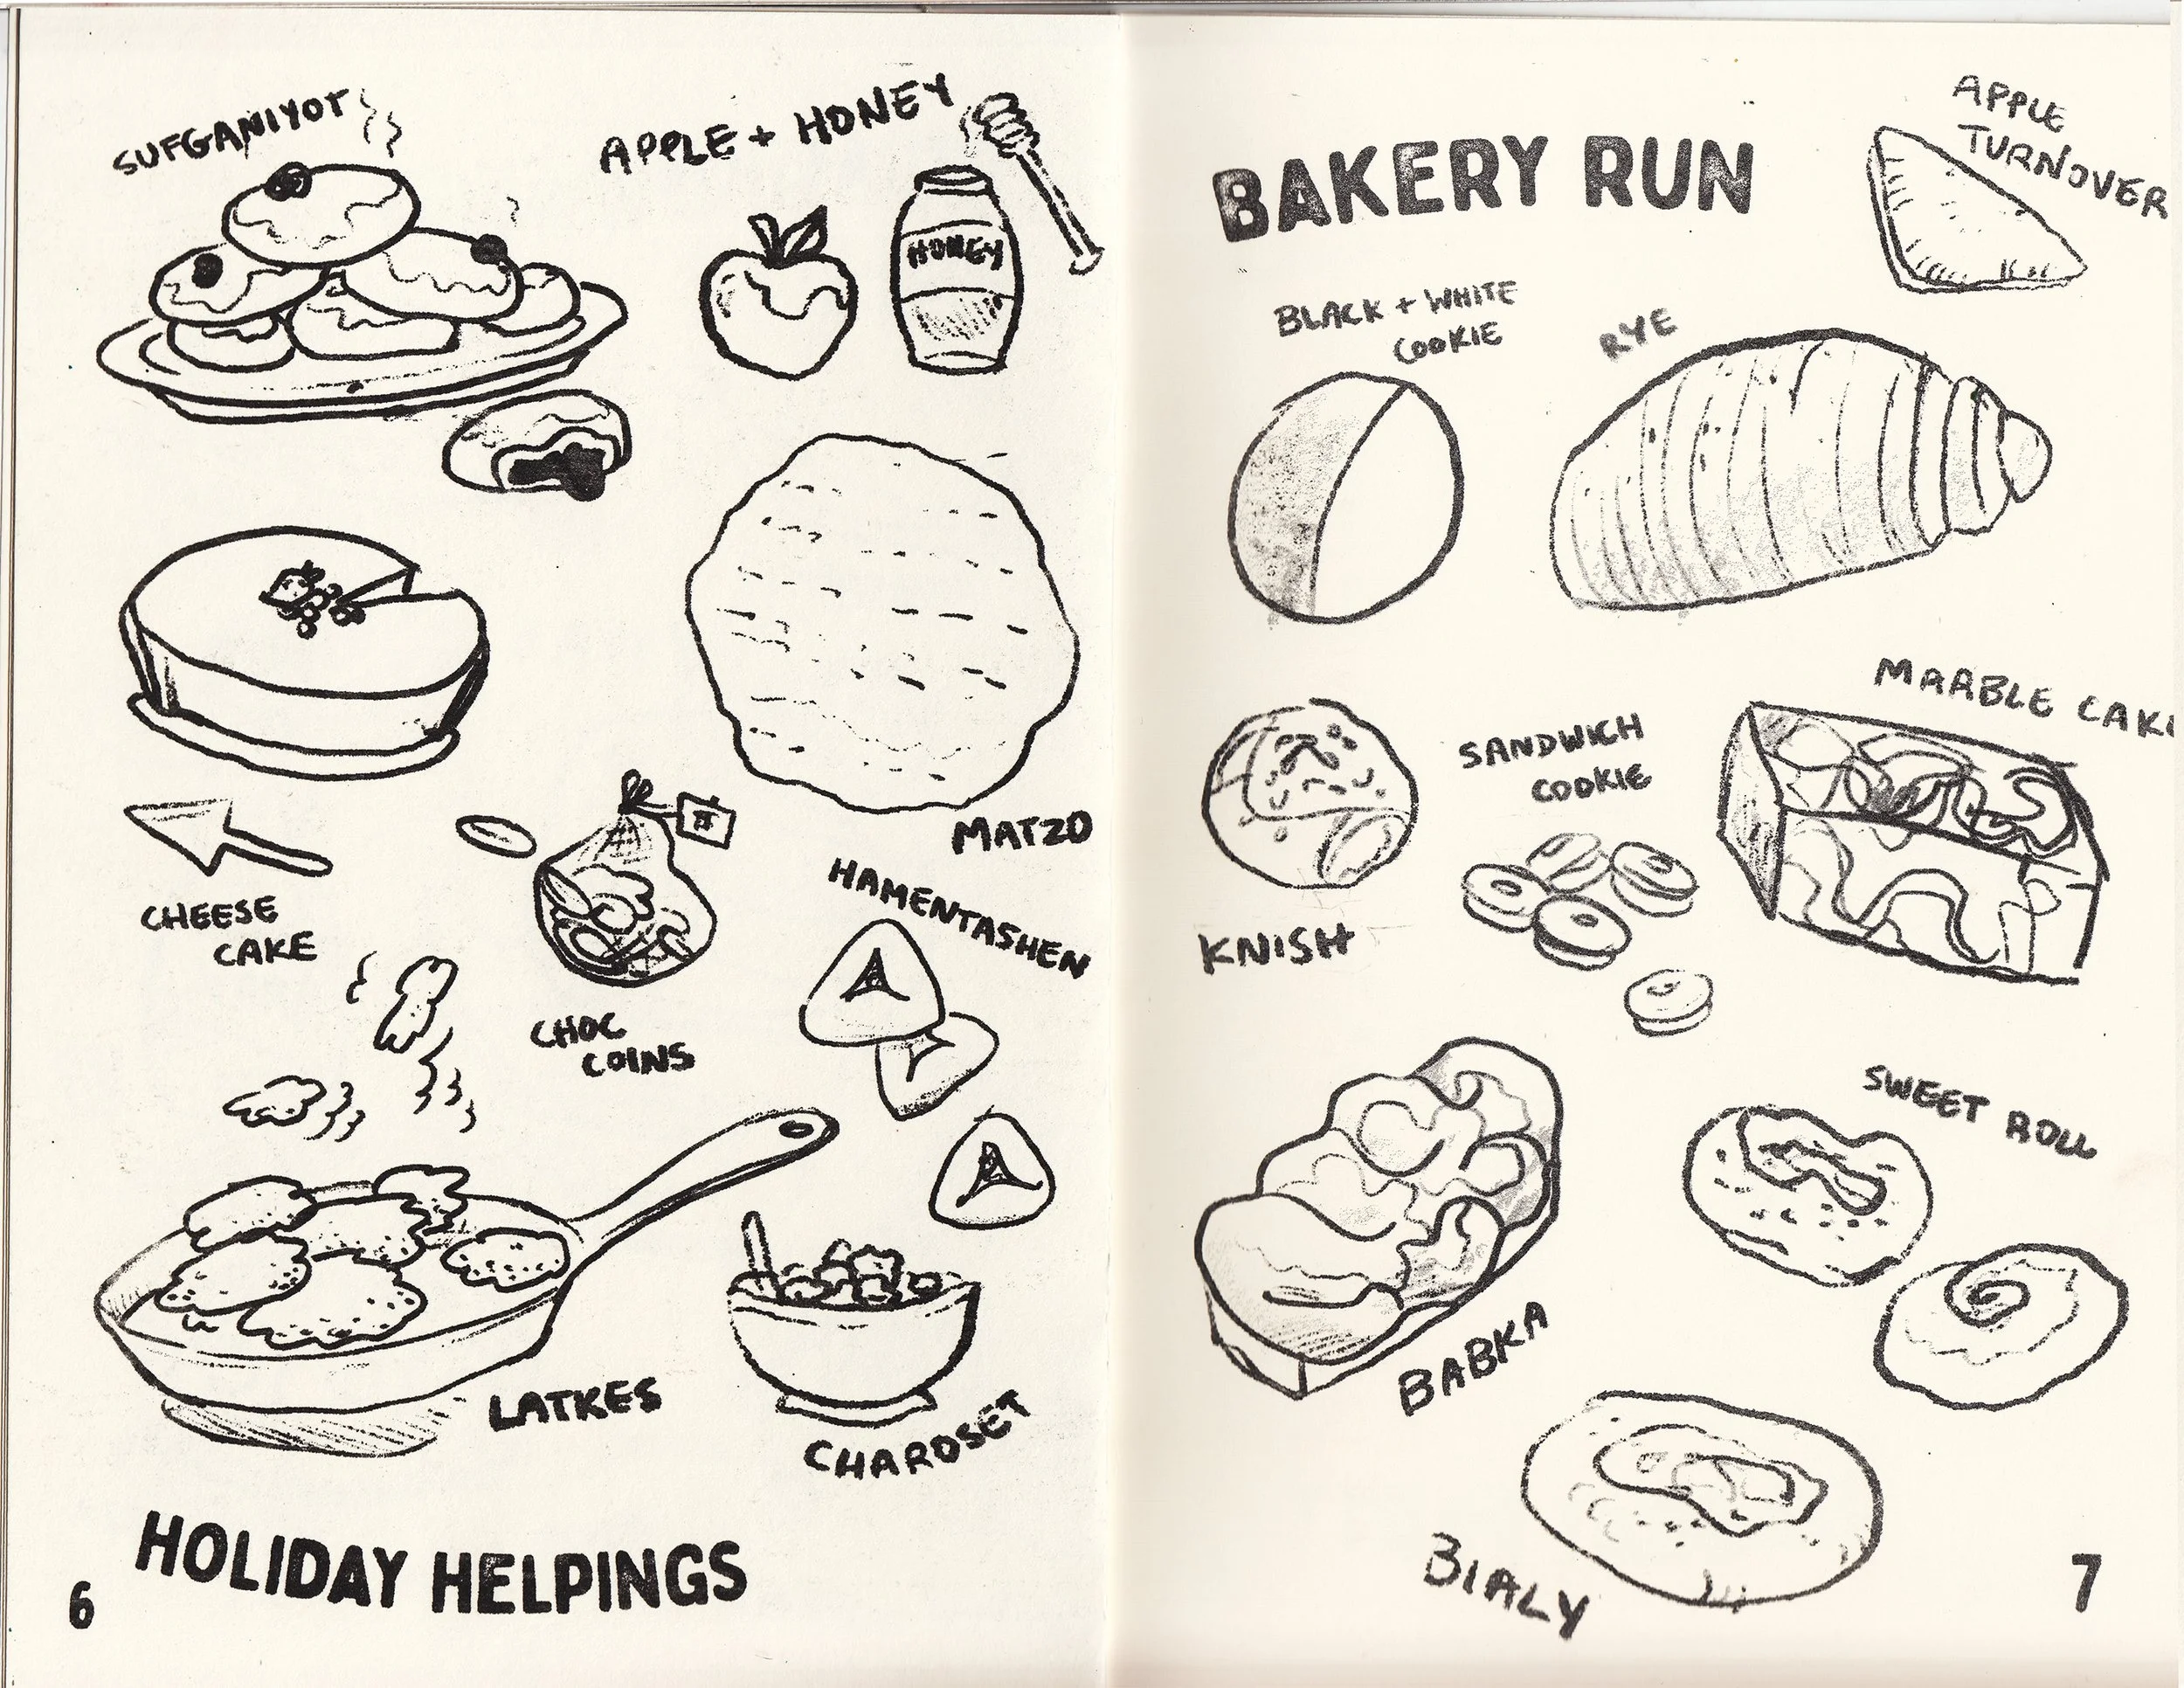 SUFGANIYOT
APPLE + HONEY
HONEY
MATZO
CHEESE
CAKE
CHOC
COINS
HAMENTASHEN
LATKES
CHAROSET
HOLIDAY HELPINGS
6
BAKERY RUN
APPLE
TURNOVER
BLACK + WHITE
COOKIE
RYE
KNISH
SANDWICH
COOKIE
MARBLE CAKE
BABKA
SWEET ROLL
BIALY
7